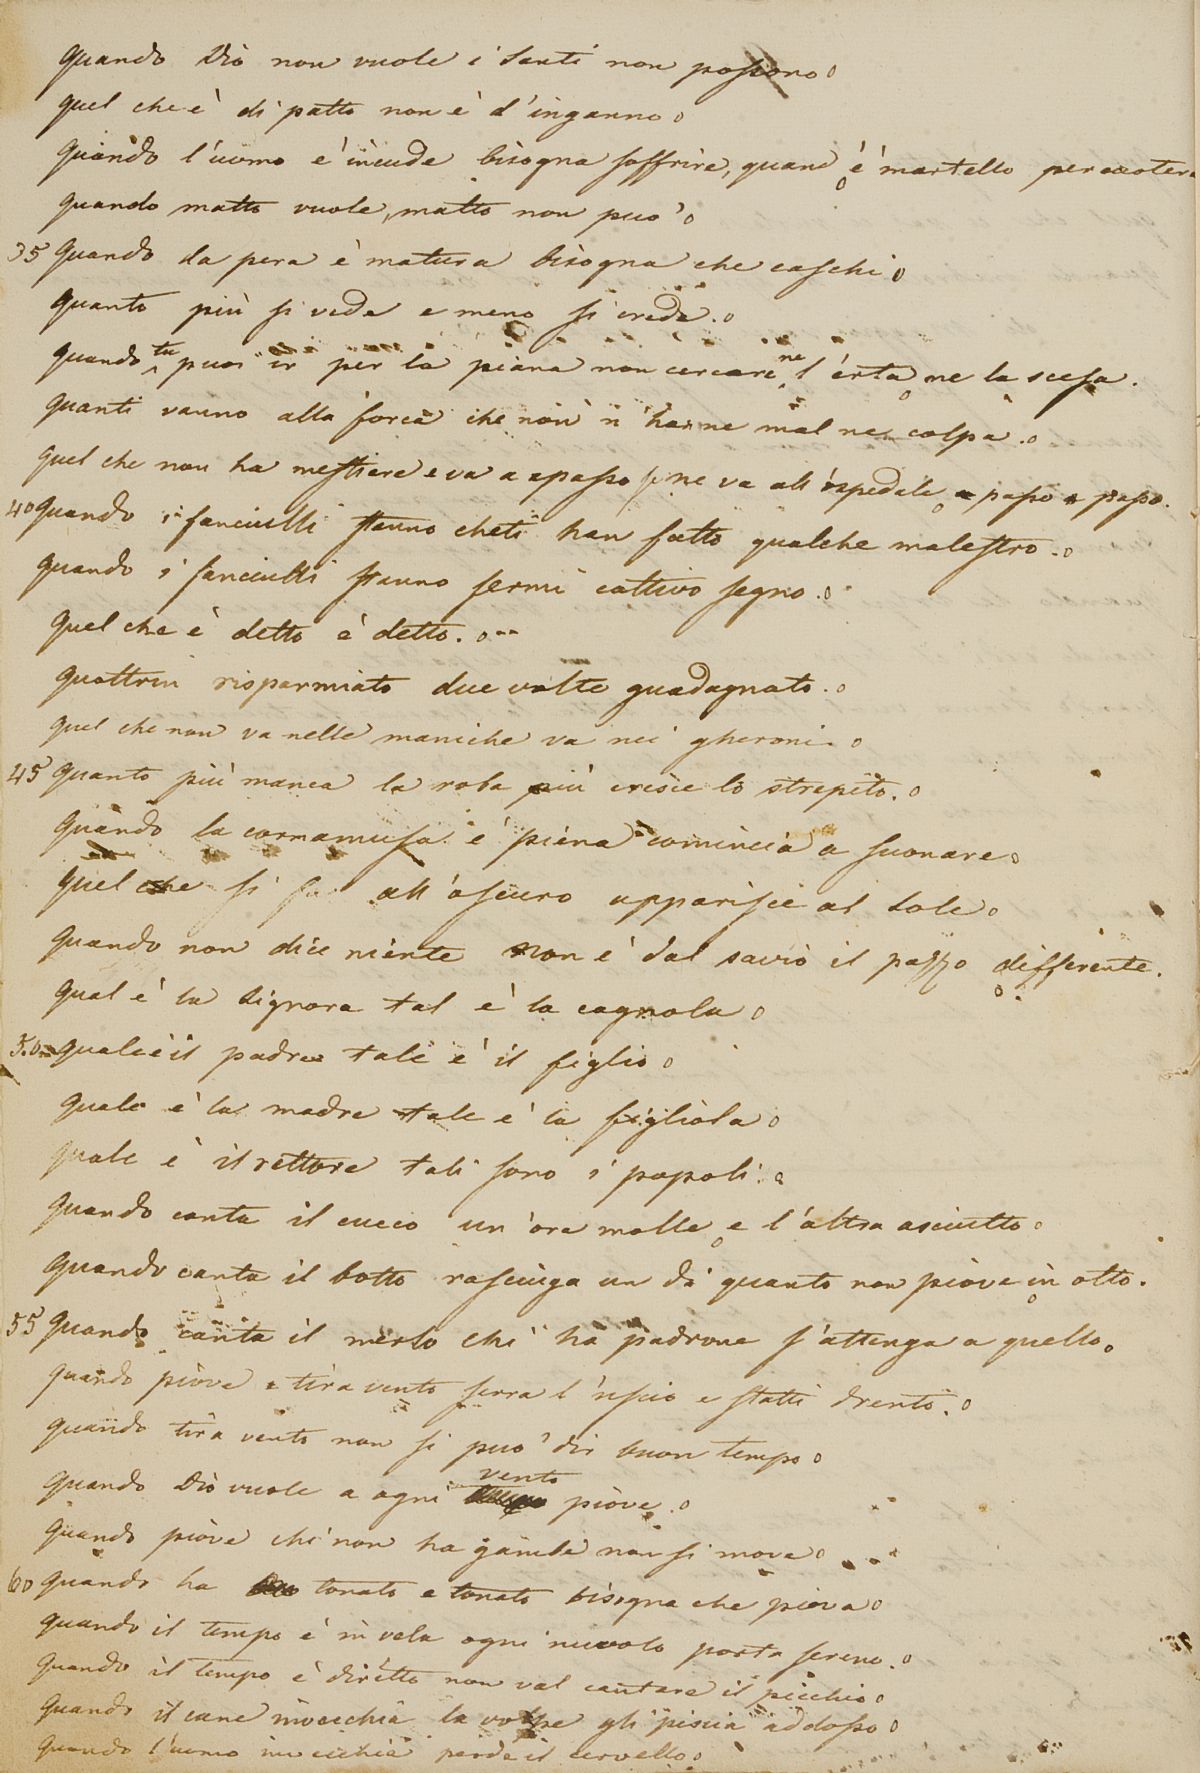 Quando Dio non vuole i Santi non possono
Quel che è di patto non è d'inganno
Quando l'uomo e' incude bisogna soffrire, quand' è martello percuotere
Quando matto vuole, matto non puo'
35 Quando la pera è matura bisogna che caschi
Quanto più si vede e meno si crede.
Quando tu puoi ir per la piana non cercare ne l'erta ne la scesa.
Quanti vanno alla forca che non n'hanne mal ne colpa.
Quel che non ha mestiere e va a spasso se ne va all'ospedale a passo a passo.
40 Quando i fanciulli stanno cheti han fatto qualche malestro.
Quando i fanciulli stanno fermi cattivo segno.
Quel che è detto è detto.
Quattrin risparmiato due volte guadagnato.
Quel che non va nelle maniche va nei gheroni.
45 Quanto più manca la roba più cresce lo strepito.
Quando la cornamusa e' piena comincia a suonare
Quel che si fa all'oscuro apparisce al Sole
Quando non dice niente non è dal savio il pazzo differente.
Qual è la Signora tal è la cagnola
50 Quale è il padre tale è il figlio
Quale è la madre tale è la figliola
Quale è il rettore tali sono i popoli.
Quando canta il cucco un'ora molle e l'altra asciutto
Quando canta il botto rasciuga un dì quanto non piove in otto.
55 Quando canta il merlo chi ha padrone s'attenga a quello.
Quando piove e tira vento serra l'uscio e statti drento.
Quando tira vento non si puo' dir buon tempo
Quando Dio vuole a ogni vento piove.
Quando piove chi non ha gambe non si move
60 Quando ha tonato e tonato bisogna che piova
Quando il tempo è in vela ogni nuvolo porta sereno.
Quando il tempo è diretto non val cantare il picchio
Quando il cane invecchia la volpe gli piscia addosso
Quando l'uomo invecchia perde il cervello